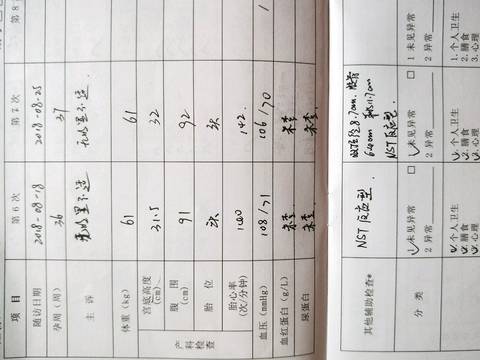 项 目 第 6 次 第 7 次 第 8
随访日期 2018-08-18 2018-08-25
孕周(周) 36 37
主 诉 无明显不适 无明显不适
体重(kg) 61 61
产科检查
宫底高度(cm) 31.5 32
腹 围(cm) 91 92
胎 位 头 头
胎心率(次/分钟) 140 142
血压(mmHg) 108/71 106/70 /
血红蛋白(g/L) 未查 未查
尿蛋白 未查 未查
其他辅助检查* NST反应型 双顶径8.7cm NST反应型
分 类 1 未见异常 □ 1 未见异常 □ 1 未见异常
2 异常 2 异常 2 异常
1. 个人卫生 1. 个人卫生 1. 个人卫生
2. 膳食 2. 膳食 2. 膳食
3. 心理 3. 心理 3. 心理